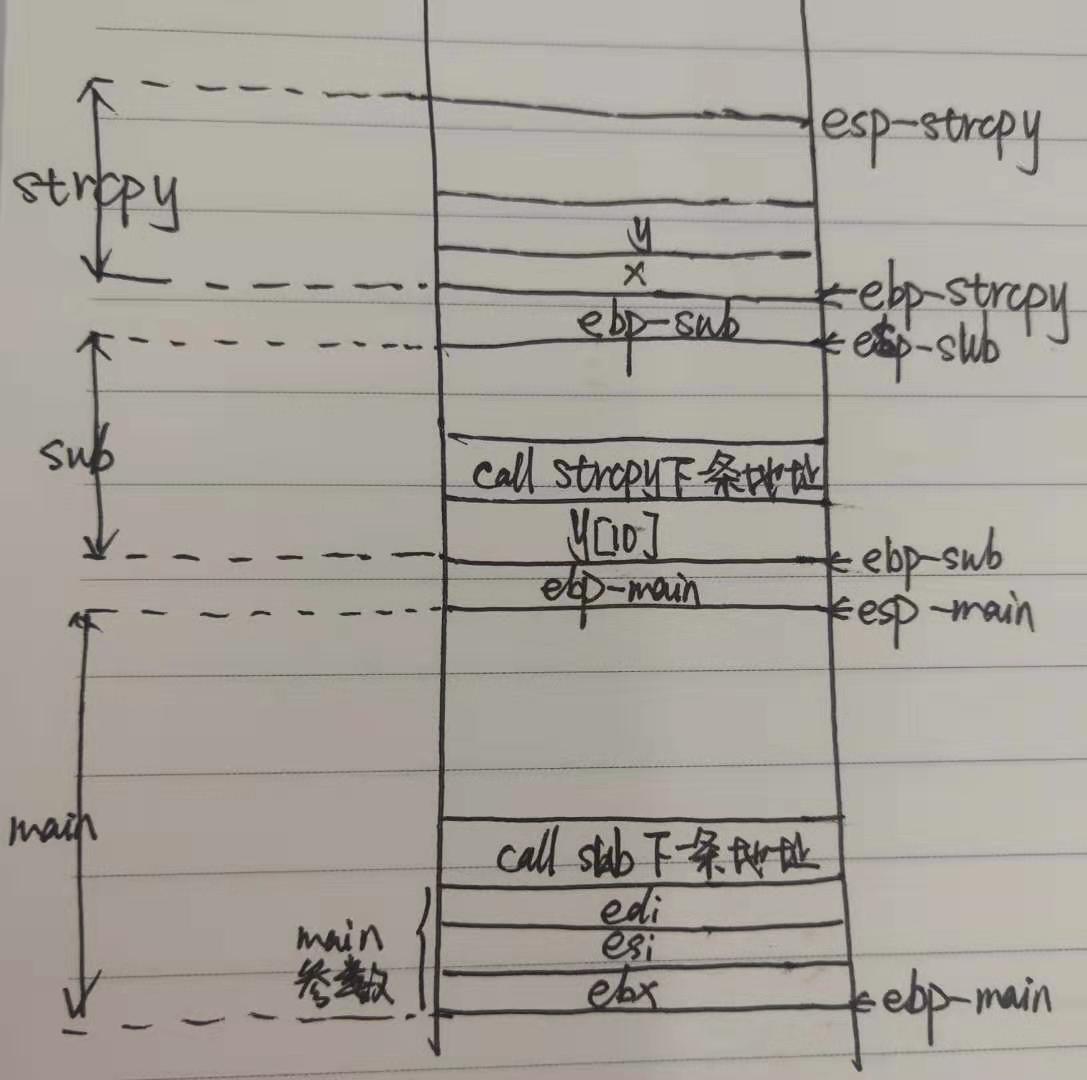 esp-strcpy
strcpy
y
x
ebp-strcpy
ebp-sub
esp-sub
sub
call strcpy下条地址
y[10]
ebp-sub
ebp-main
esp-main
main
call sub下条地址
edi
main
参数
esi
ebx
ebp-main